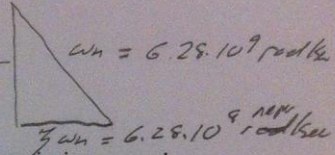 ωn = 6.28·10⁹ rad/sec
ζωn = 6.28·10⁸ neper/sec